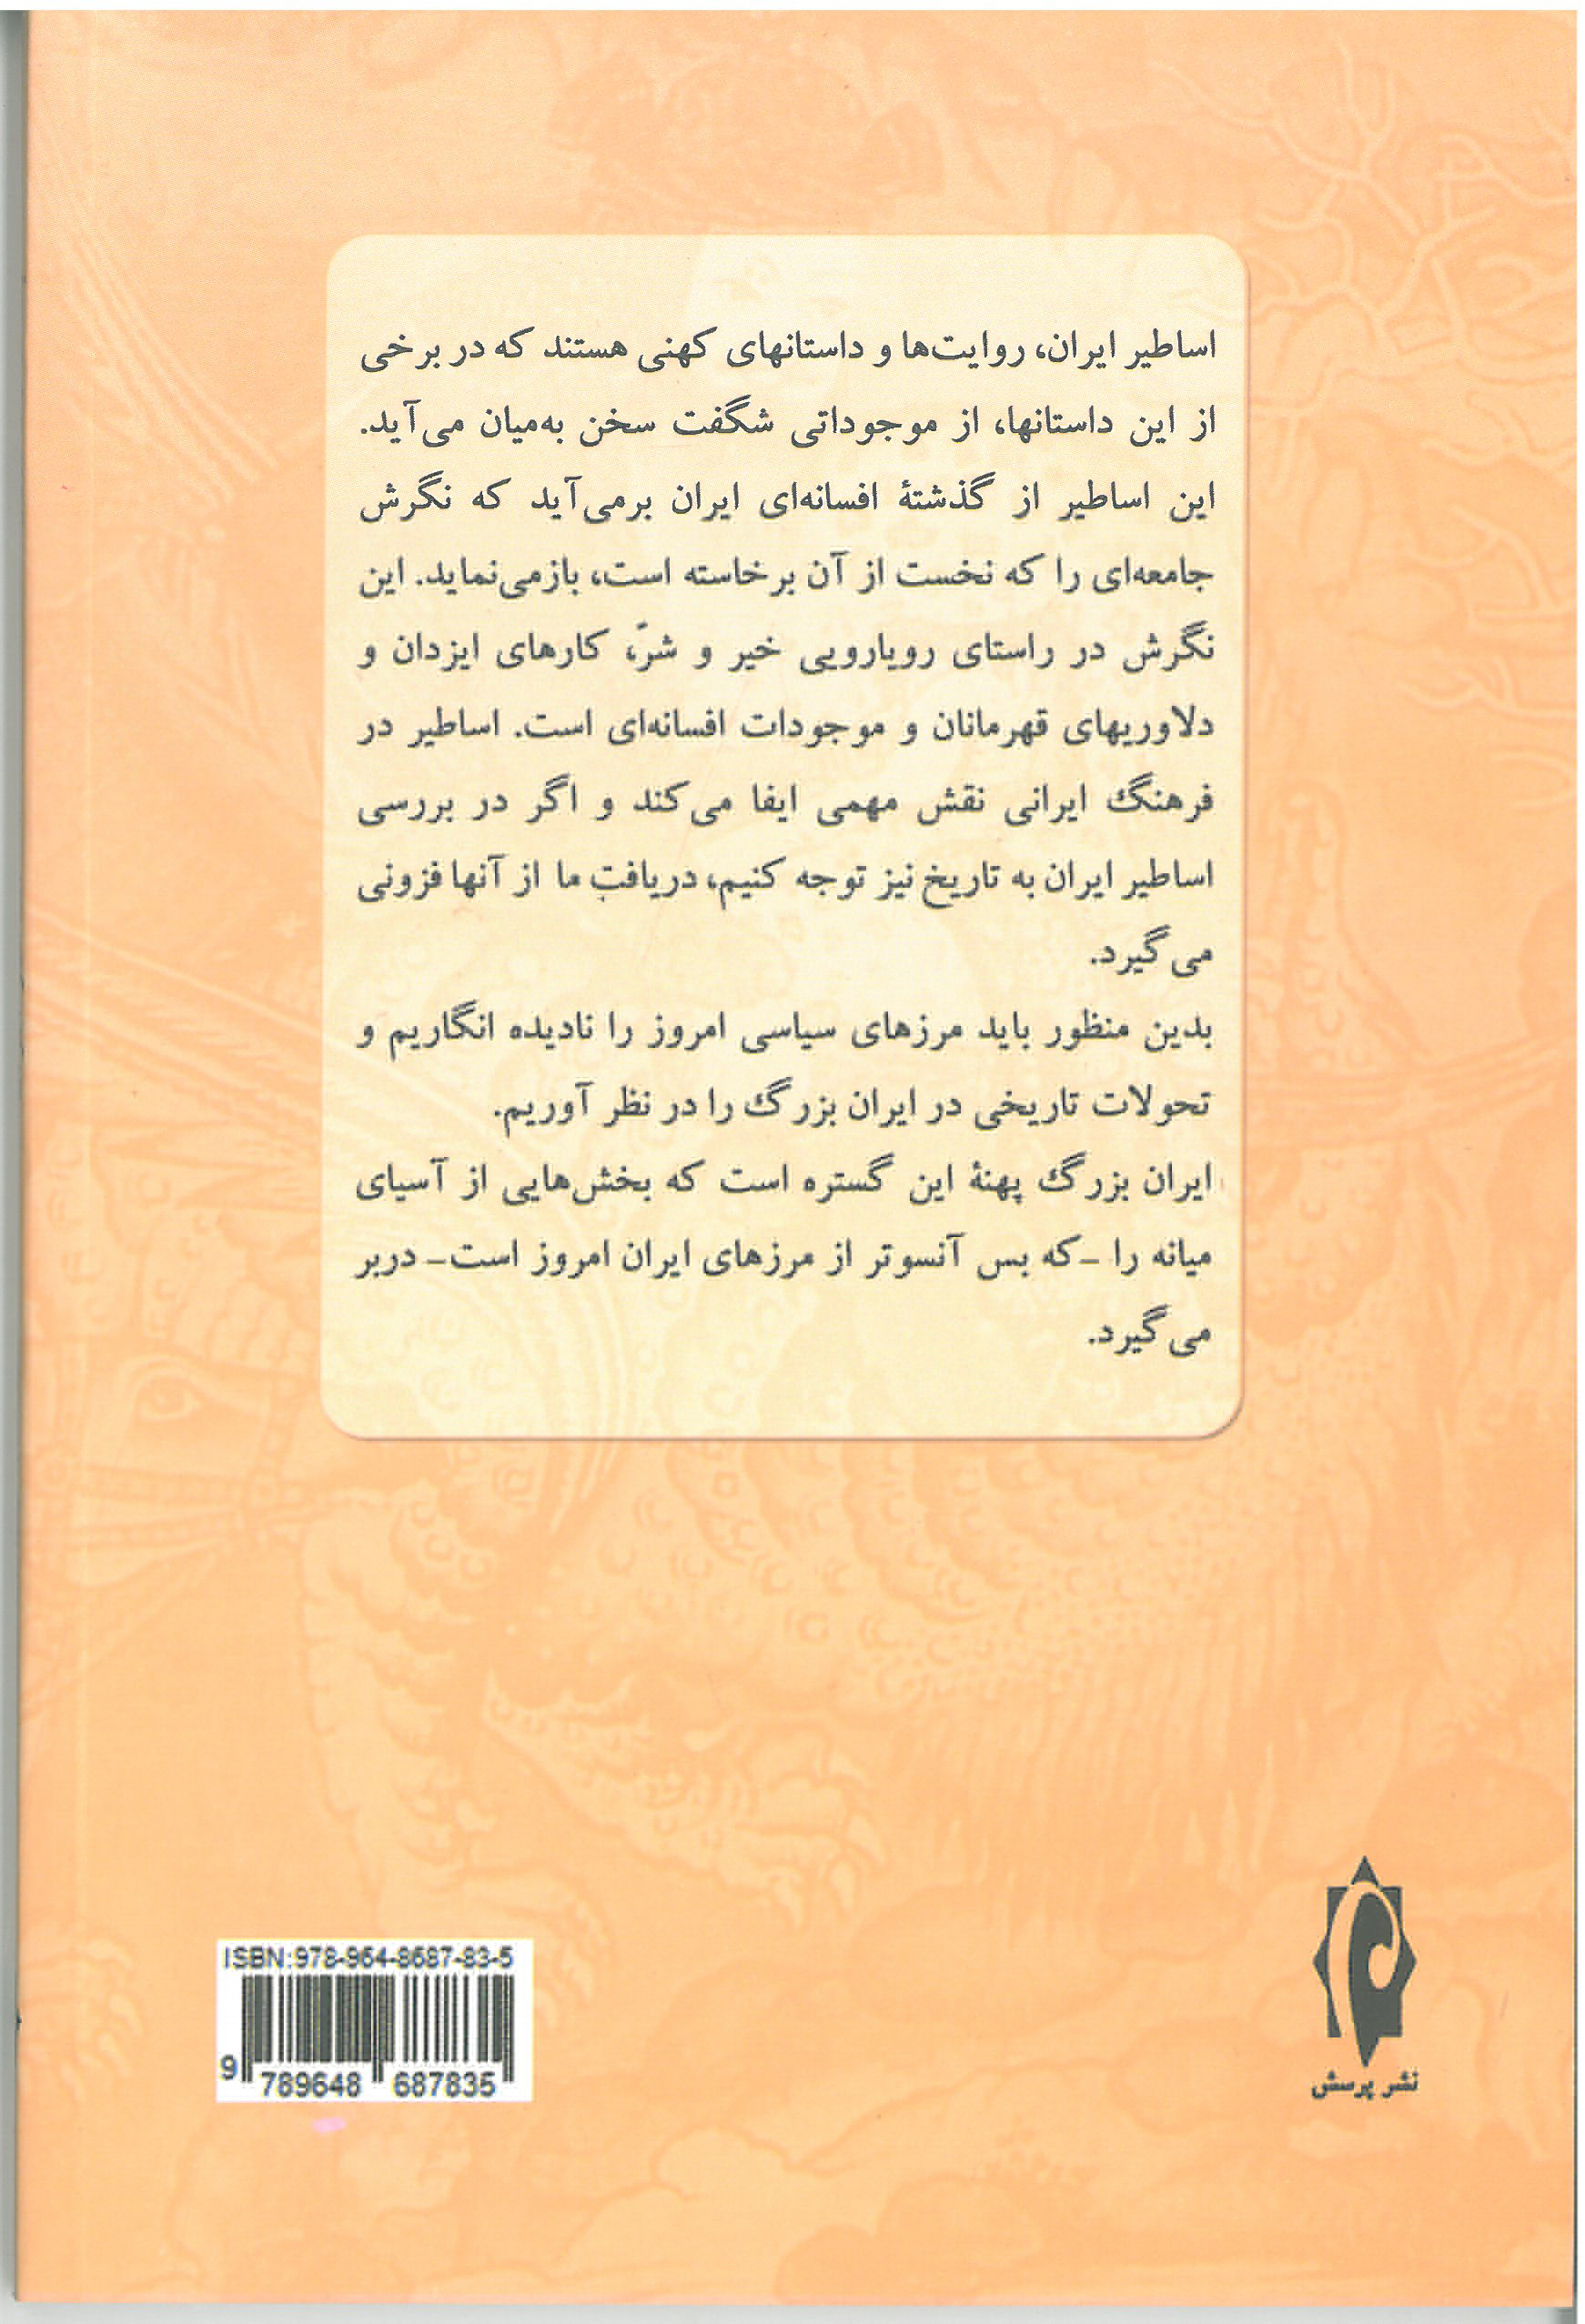 اساطیر ایران، روایت‌ها و داستانهای کهنی هستند که در برخی
از این داستانها، از موجوداتی شگفت سخن به‌میان می‌آید.
این اساطیر از گذشتهٔ افسانه‌ای ایران برمی‌آید که نگرش
جامعه‌ای را که نخست از آن برخاسته است، بازمی‌نماید. این
نگرش در راستای رویارویی خیر و شرّ، کارهای ایزدان و
دلاوریهای قهرمانان و موجودات افسانه‌ای است. اساطیر در
فرهنگ ایرانی نقش مهمی ایفا می‌کند و اگر در بررسی
اساطیر ایران به تاریخ نیز توجه کنیم، دریافتِ ما از آنها فزونی
می‌گیرد.
بدین منظور باید مرزهای سیاسی امروز را نادیده انگاریم و
تحولات تاریخی در ایران بزرگ را در نظر آوریم.
ایران بزرگ پهنهٔ این گستره است که بخش‌هایی از آسیای
میانه را -که بس آنسوتر از مرزهای ایران امروز است- دربر
می‌گیرد.
ISBN:978-964-8687-83-5
9 789648 687835
نشر پرسش